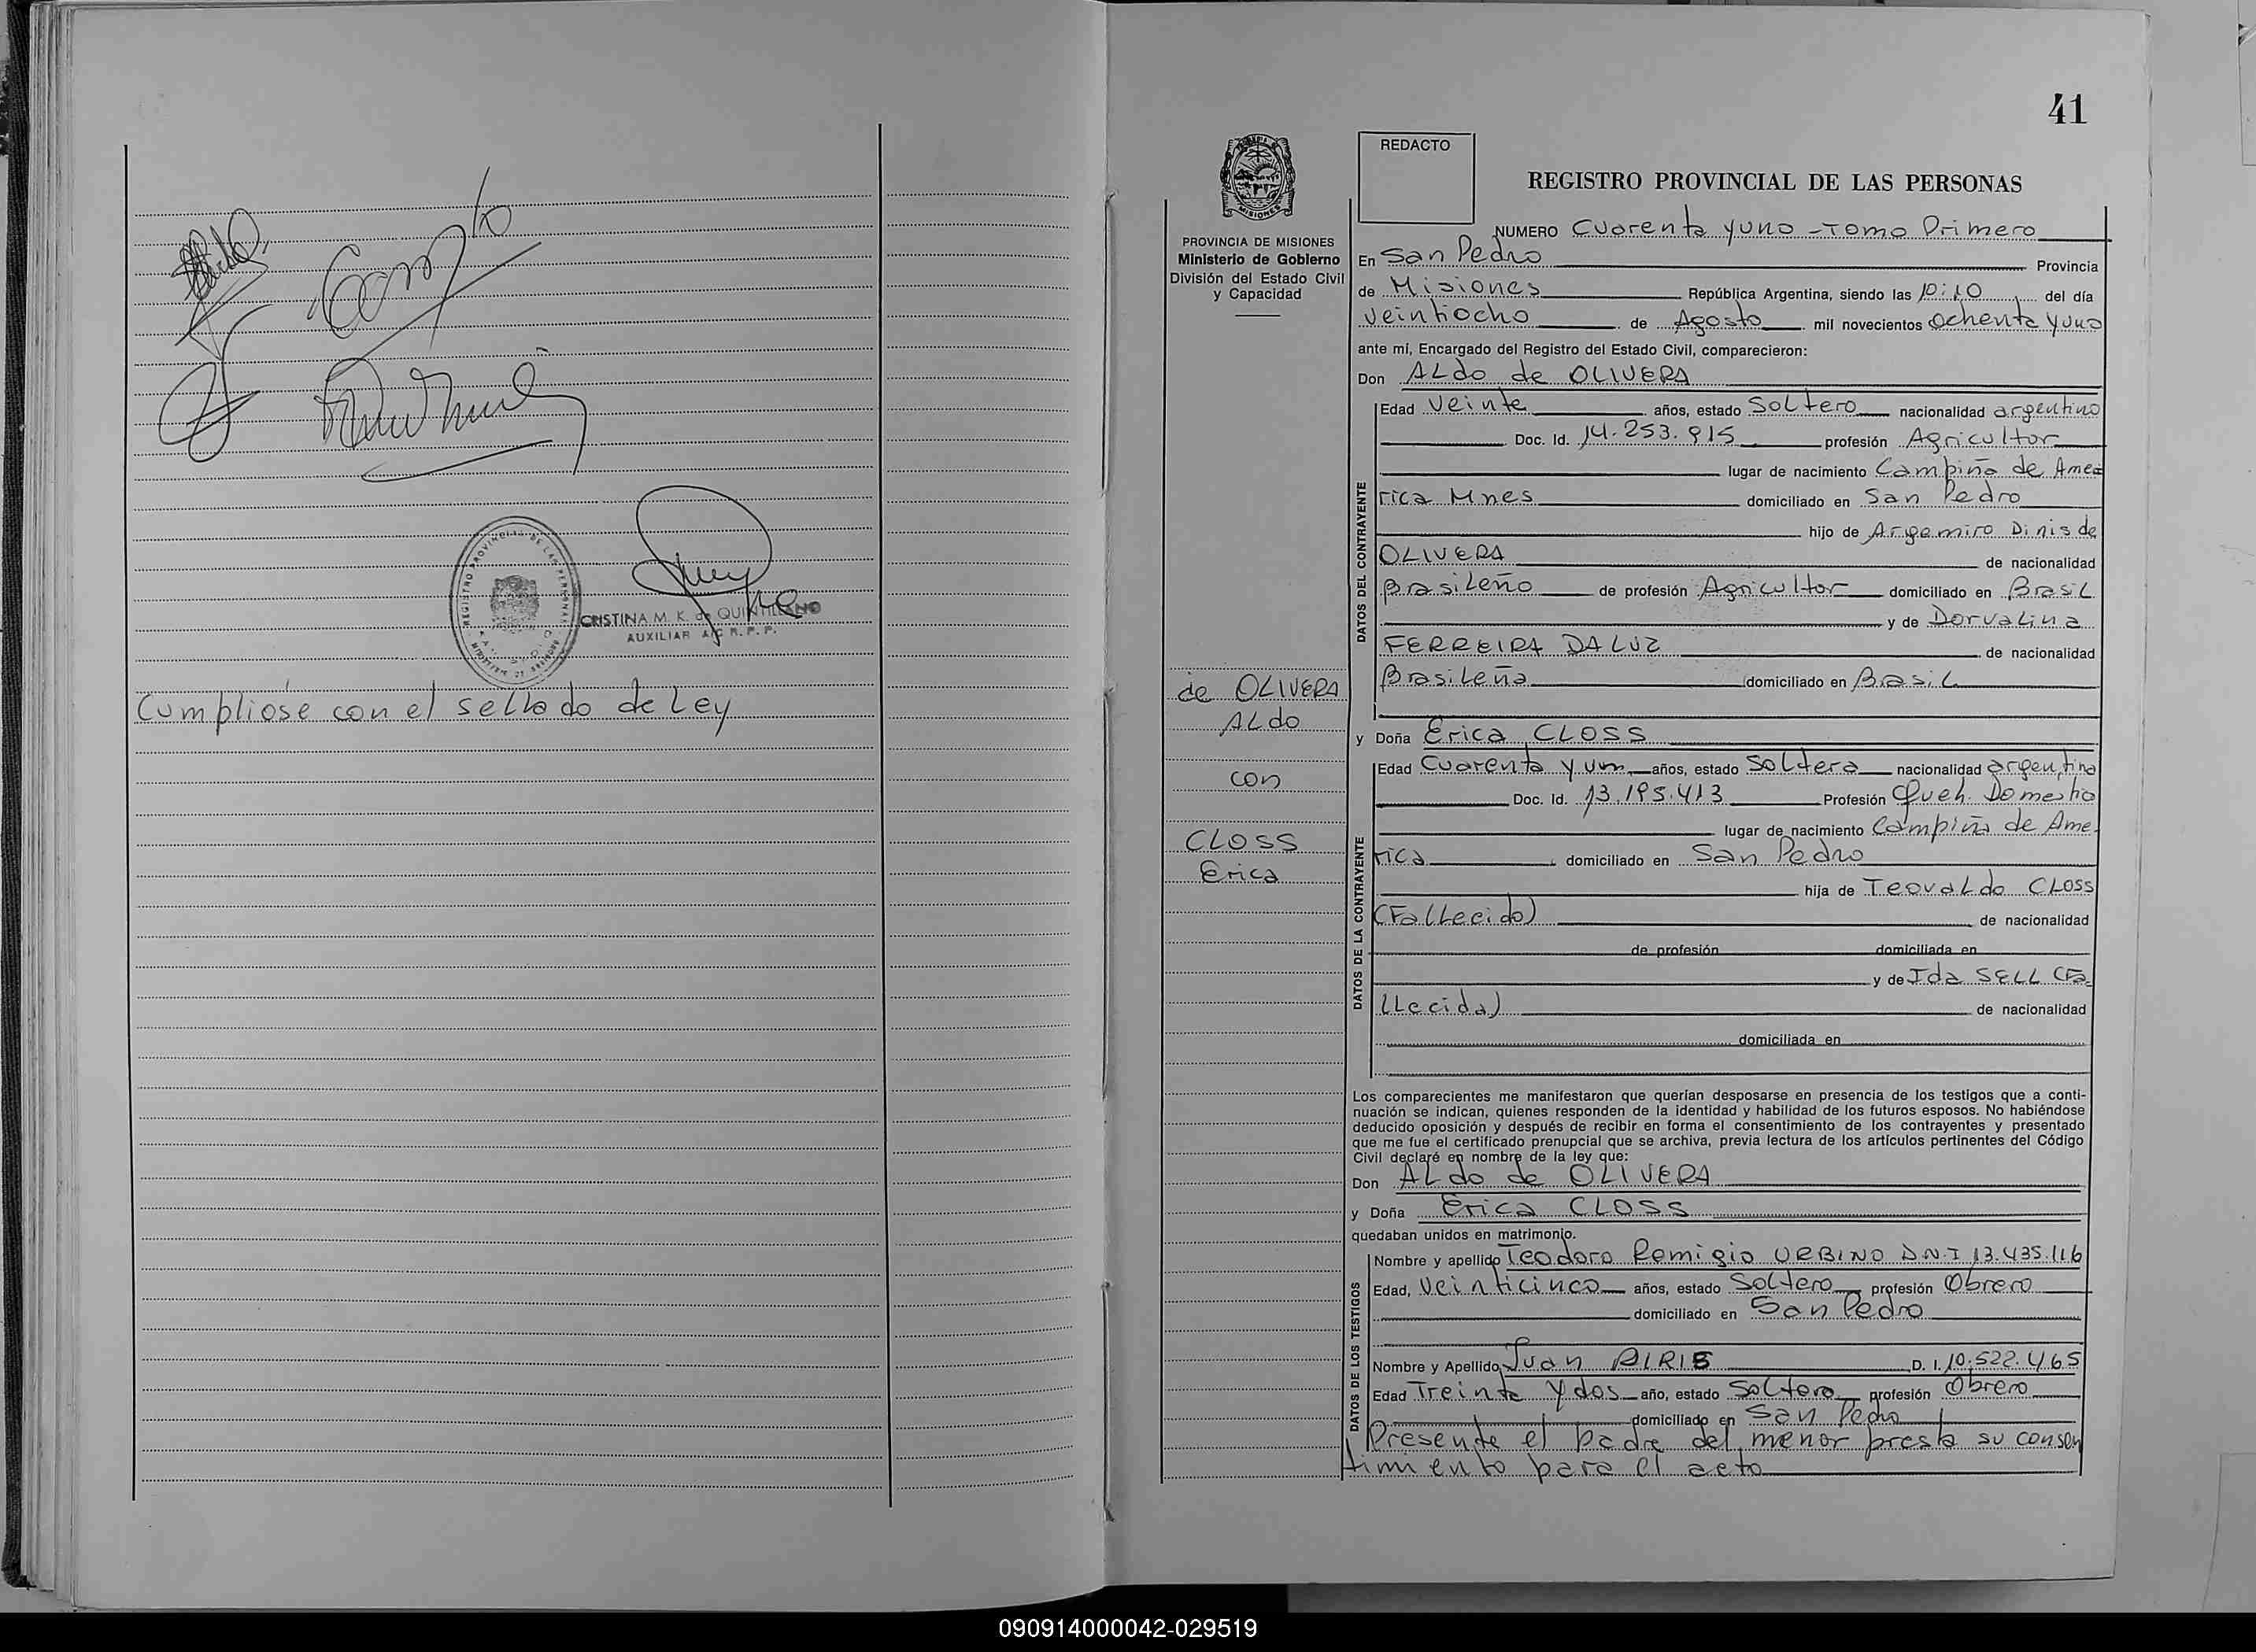 CRISTINA M. K. de QUINTILLANO
AUXILIAR A/C R. P. P.
Cumplióse con el sellado de Ley
41
REDACTO
MISIONES
PROVINCIA DE MISIONES
Ministerio de Gobierno
División del Estado Civil
y Capacidad
de OLIVERA
ALdo
con
CLOSS
Erica
REGISTRO PROVINCIAL DE LAS PERSONAS
NUMERO Cuarenta y uno - Tomo Primero
En San Pedro Provincia
de Misiones República Argentina, siendo las 10:10 del día
veintiocho de Agosto mil novecientos ochenta y uno
ante mí, Encargado del Registro del Estado Civil, comparecieron:
Don ALdo de OLIVERA
DATOS DEL CONTRAYENTE
Edad Veinte años, estado SoLtero nacionalidad argentino
Doc. Id. 14.253.915 profesión Agricultor
lugar de nacimiento Campiña de Ame
rica Mnes domiciliado en San Pedro
hijo de Argemiro Dinis de
OLIVERA de nacionalidad
BrasiLeño de profesión Agricultor domiciliado en BrasiL
y de DorvaLina
FERREIRA DA LUZ de nacionalidad
BrasiLeña domiciliado en BrasiL
y Doña Erica CLOSS
DATOS DE LA CONTRAYENTE
Edad Cuarenta y un años, estado SoLtera nacionalidad argentina
Doc. Id. 13.195.413 Profesión Queh. Domestico
lugar de nacimiento Campiña de Ame
rica domiciliado en San Pedro
hija de TeovaLdo CLOSS
(FaLLecido) de nacionalidad
de profesión domiciliada en
y de Ida SELL (Fa
LLecida) de nacionalidad
domiciliada en
Los comparecientes me manifestaron que querían desposarse en presencia de los testigos que a conti-
nuación se indican, quienes responden de la identidad y habilidad de los futuros esposos. No habiéndose
deducido oposición y después de recibir en forma el consentimiento de los contrayentes y presentado
que me fue el certificado prenupcial que se archiva, previa lectura de los artículos pertinentes del Código
Civil declaré en nombre de la ley que:
Don ALdo de OLIVERA
y Doña Erica CLOSS
quedaban unidos en matrimonio.
DATOS DE LOS TESTIGOS
Nombre y apellido Teodoro Remigio URBINO D.N.I 13.435.116
Edad, Veinticinco años, estado SoLtero profesión Obrero
domiciliado en San Pedro
Nombre y Apellido Juan D. I. 10.522.465
Edad Treinta y dos año, estado SoLtero profesión Obrero
domiciliado en San Pedro
Presente el padre del menor presta su consen
timiento para el acto
090914000042-029519